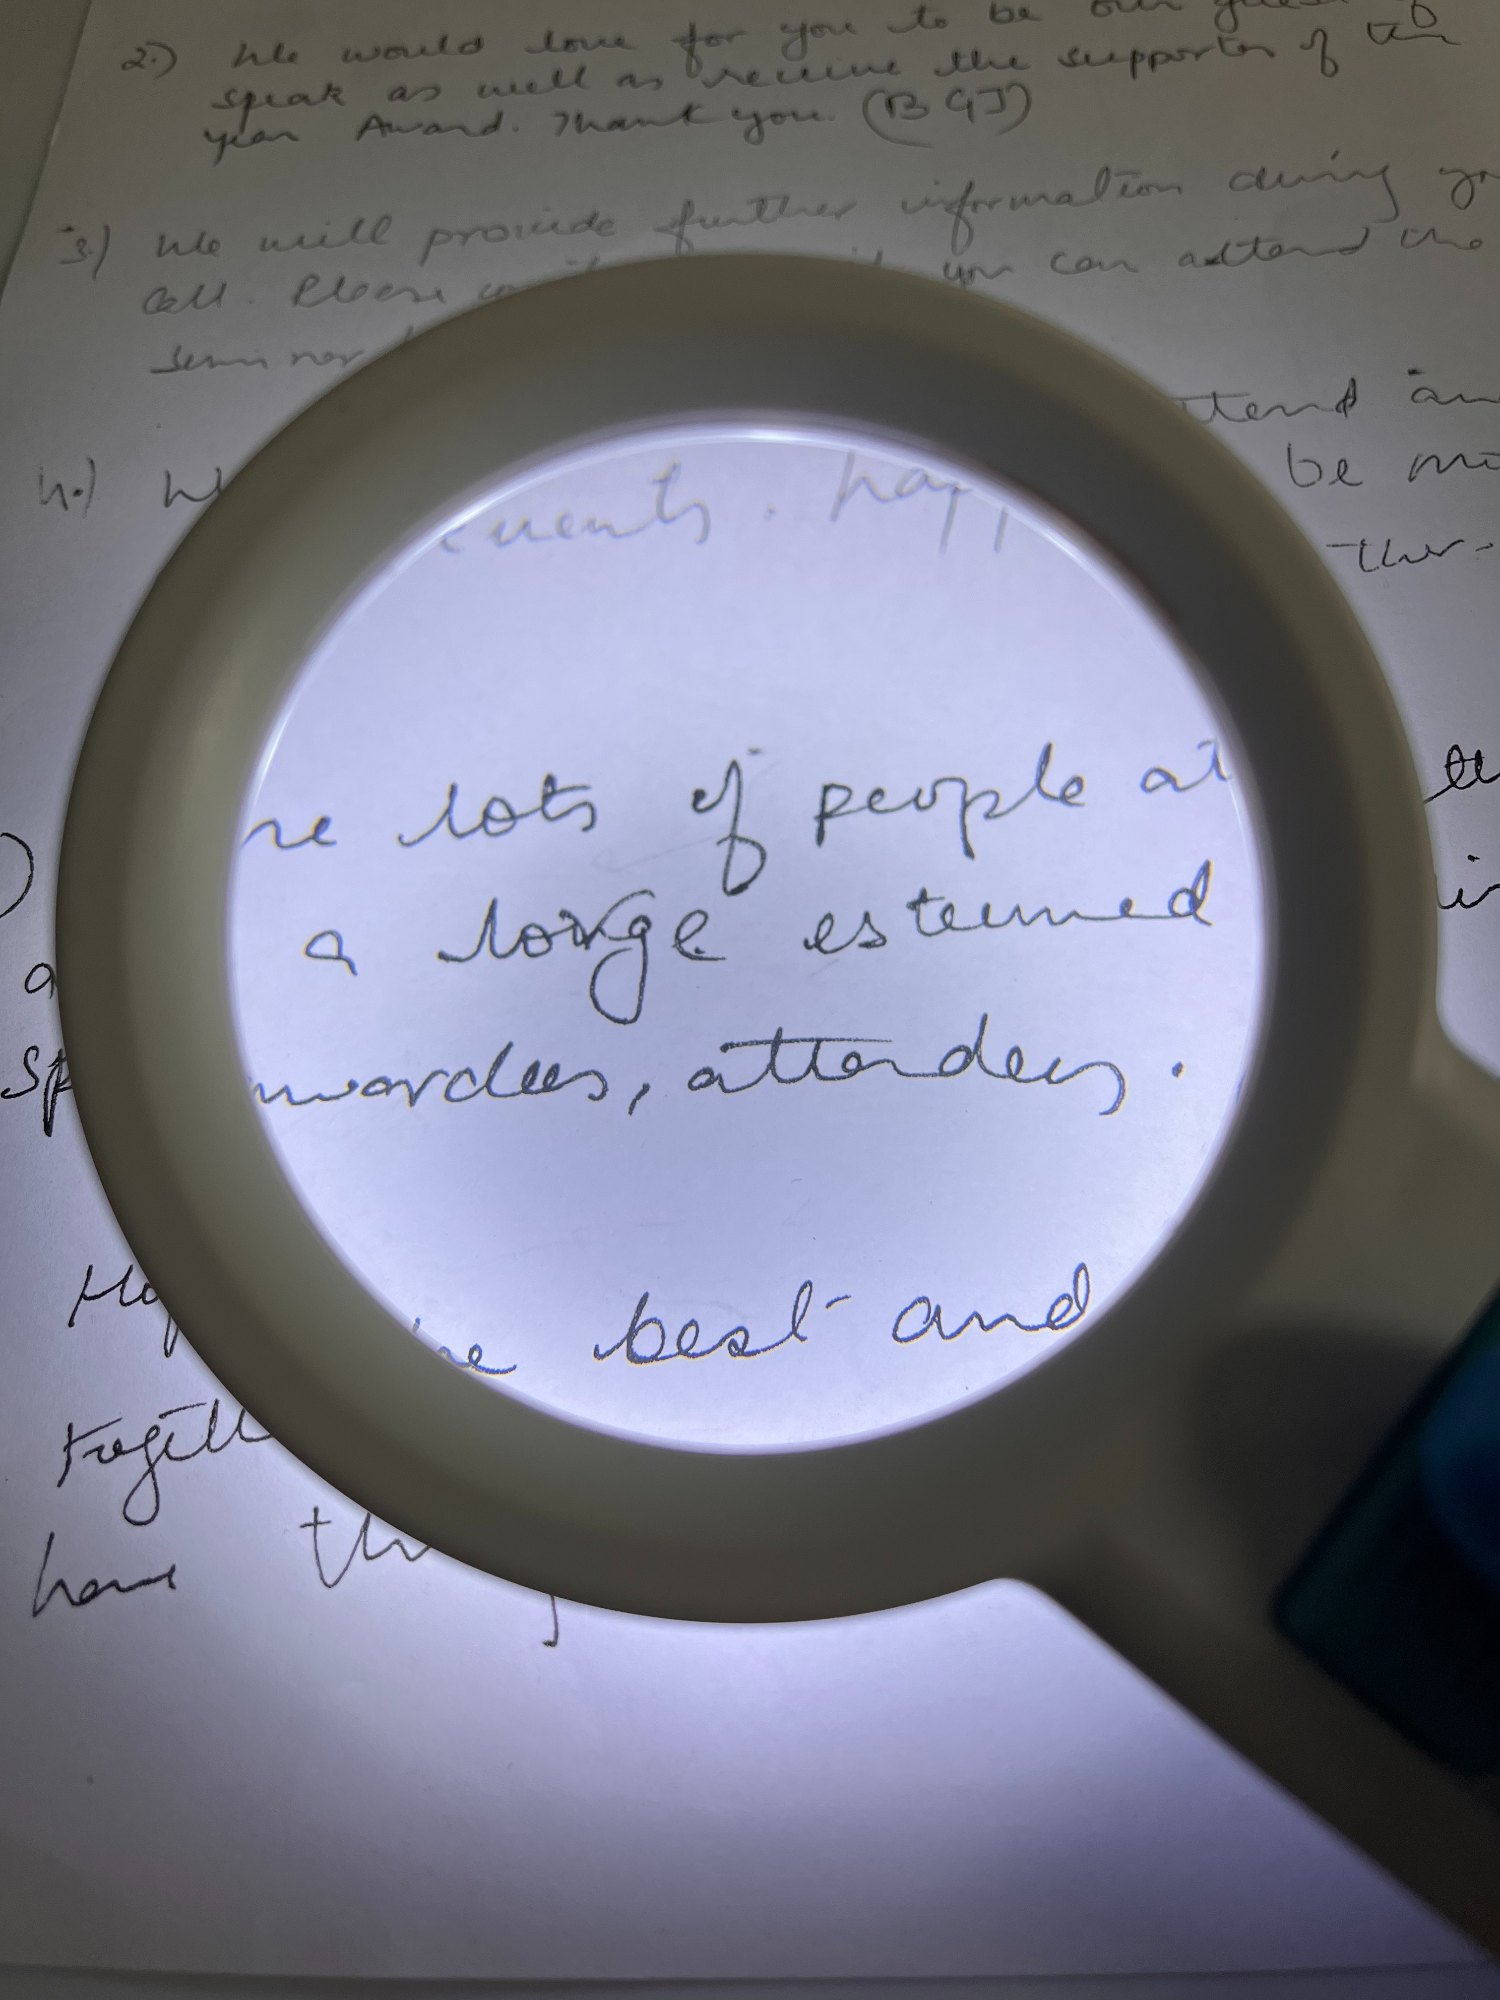 2.) We would love for you to be our guest
speak as well as receive the supporter of the
year Award. Thank you. (BGJ)
3.) We will provide further information during
call. Please you can attend the
seminar
4.) tend
be
events. happ
ther.
re lots of people at
a large esteemed
wardees, attendees.
he best and
togeth
have th